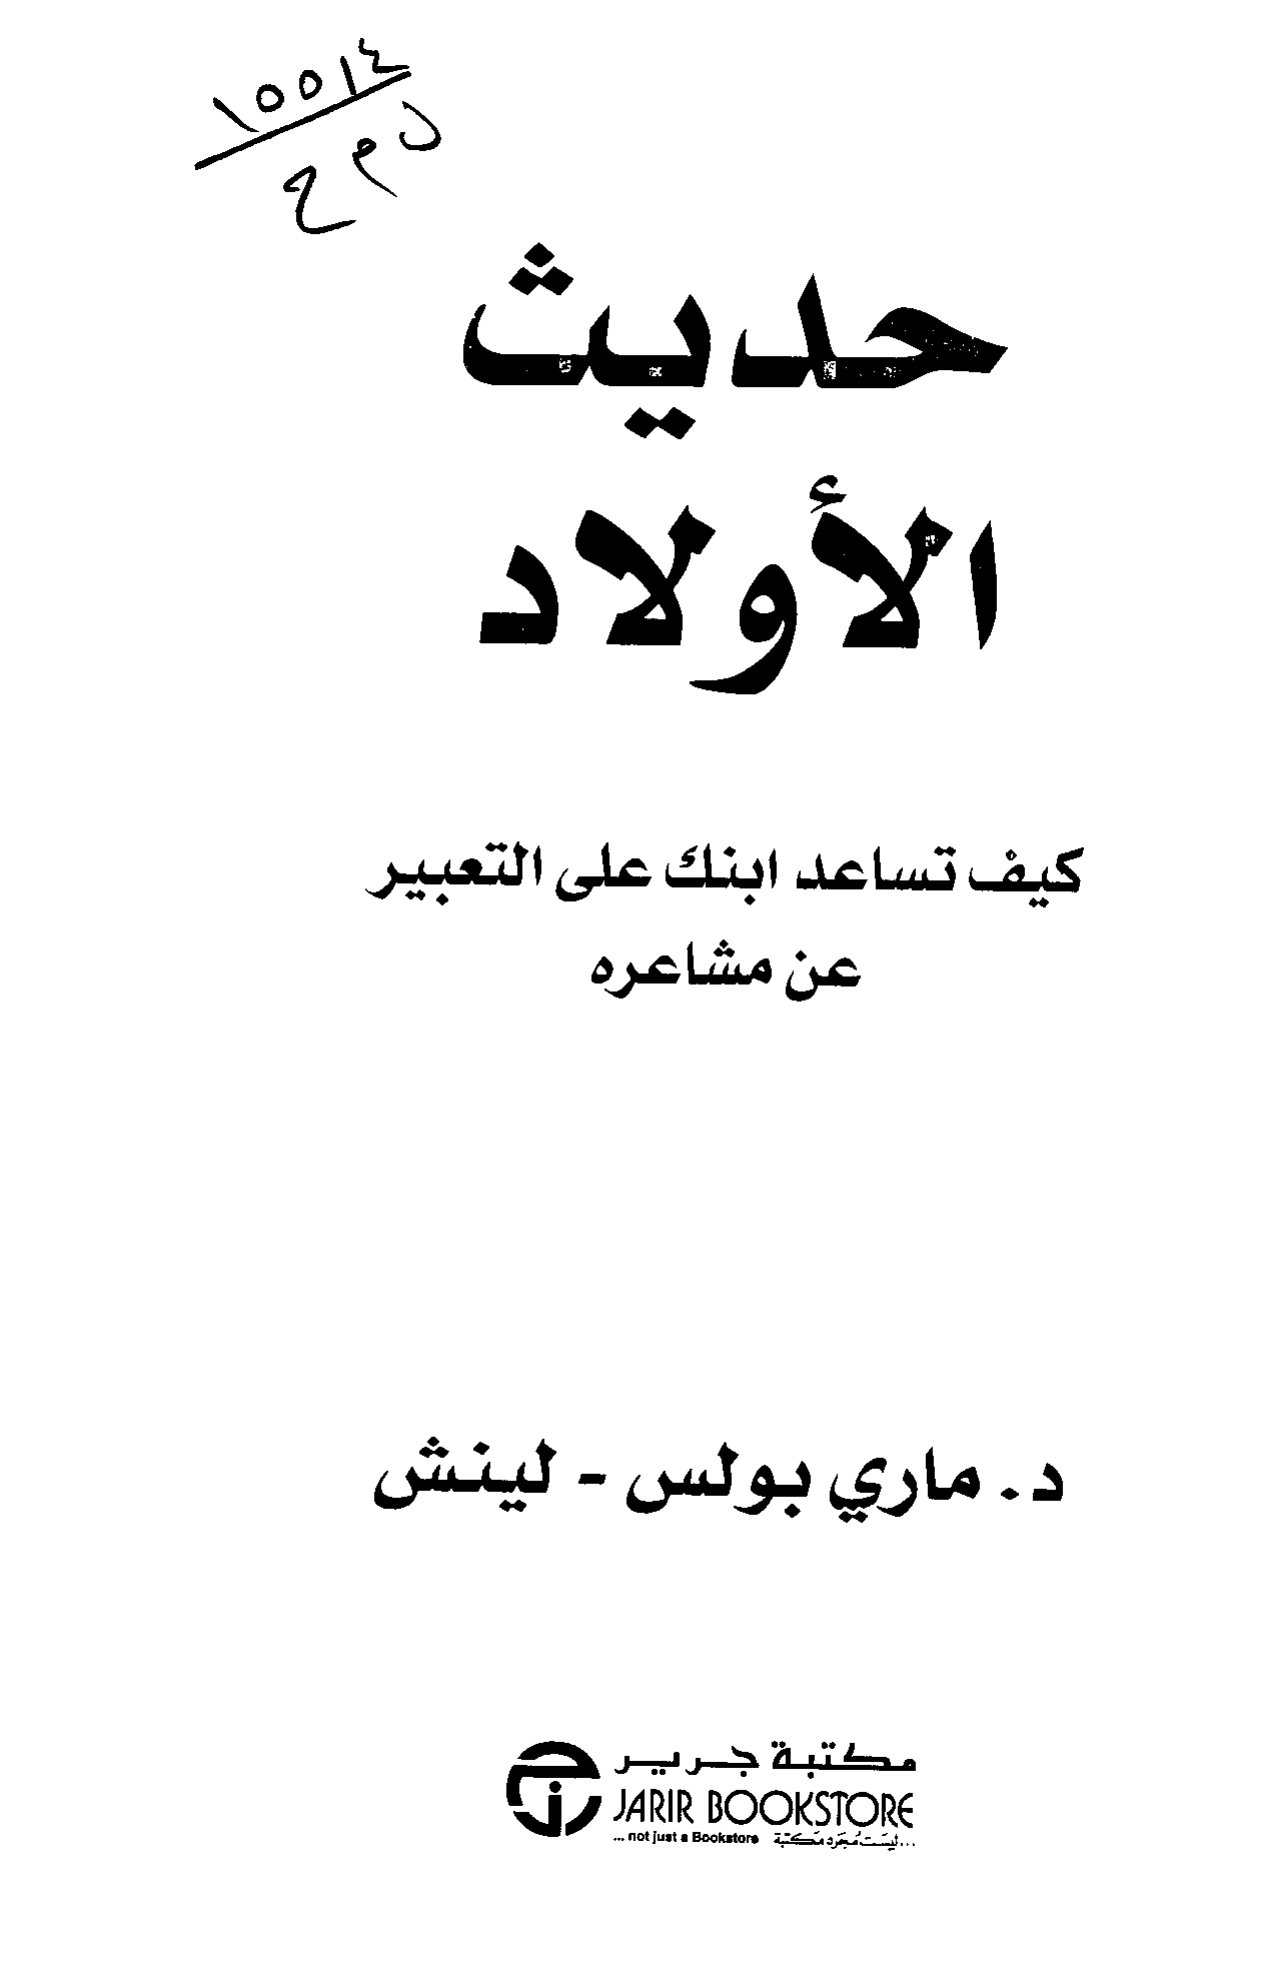 ١٥٥١٤
حديث
الأولاد
كيف تساعد ابنك على التعبير
عن مشاعره
د. ماري بولس - لينش
مكتبة جرير
JARIR BOOKSTORE
... not just a Bookstore ...ليست مُجَرد مَكتبة